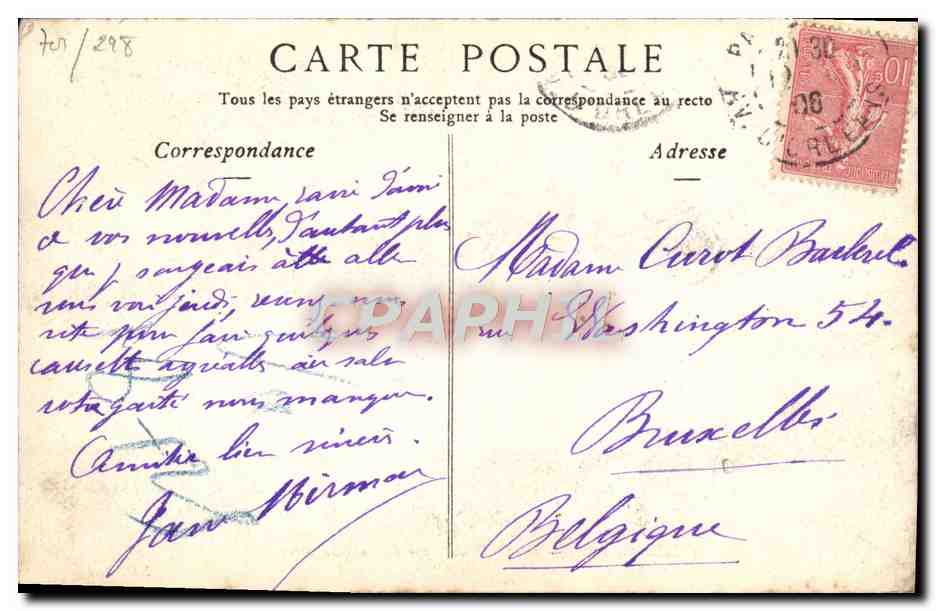 298
CARTE POSTALE
Tous les pays étrangers n'acceptent pas la correspondance au recto
Se renseigner à la poste
Correspondance
Adresse
Chère Madame, ravie d'avoir
de vos nouvelles, d'autant plus
que je songeais aller
vous voir jeudi, venez nous
vite pour faire quelques
causette agréables au salon
votre gaité nous manque.
Amitié bien sincère.
Madame Curot
rue Washington 54.
Bruxelles
Belgique
CPAPHIL
10
30
06